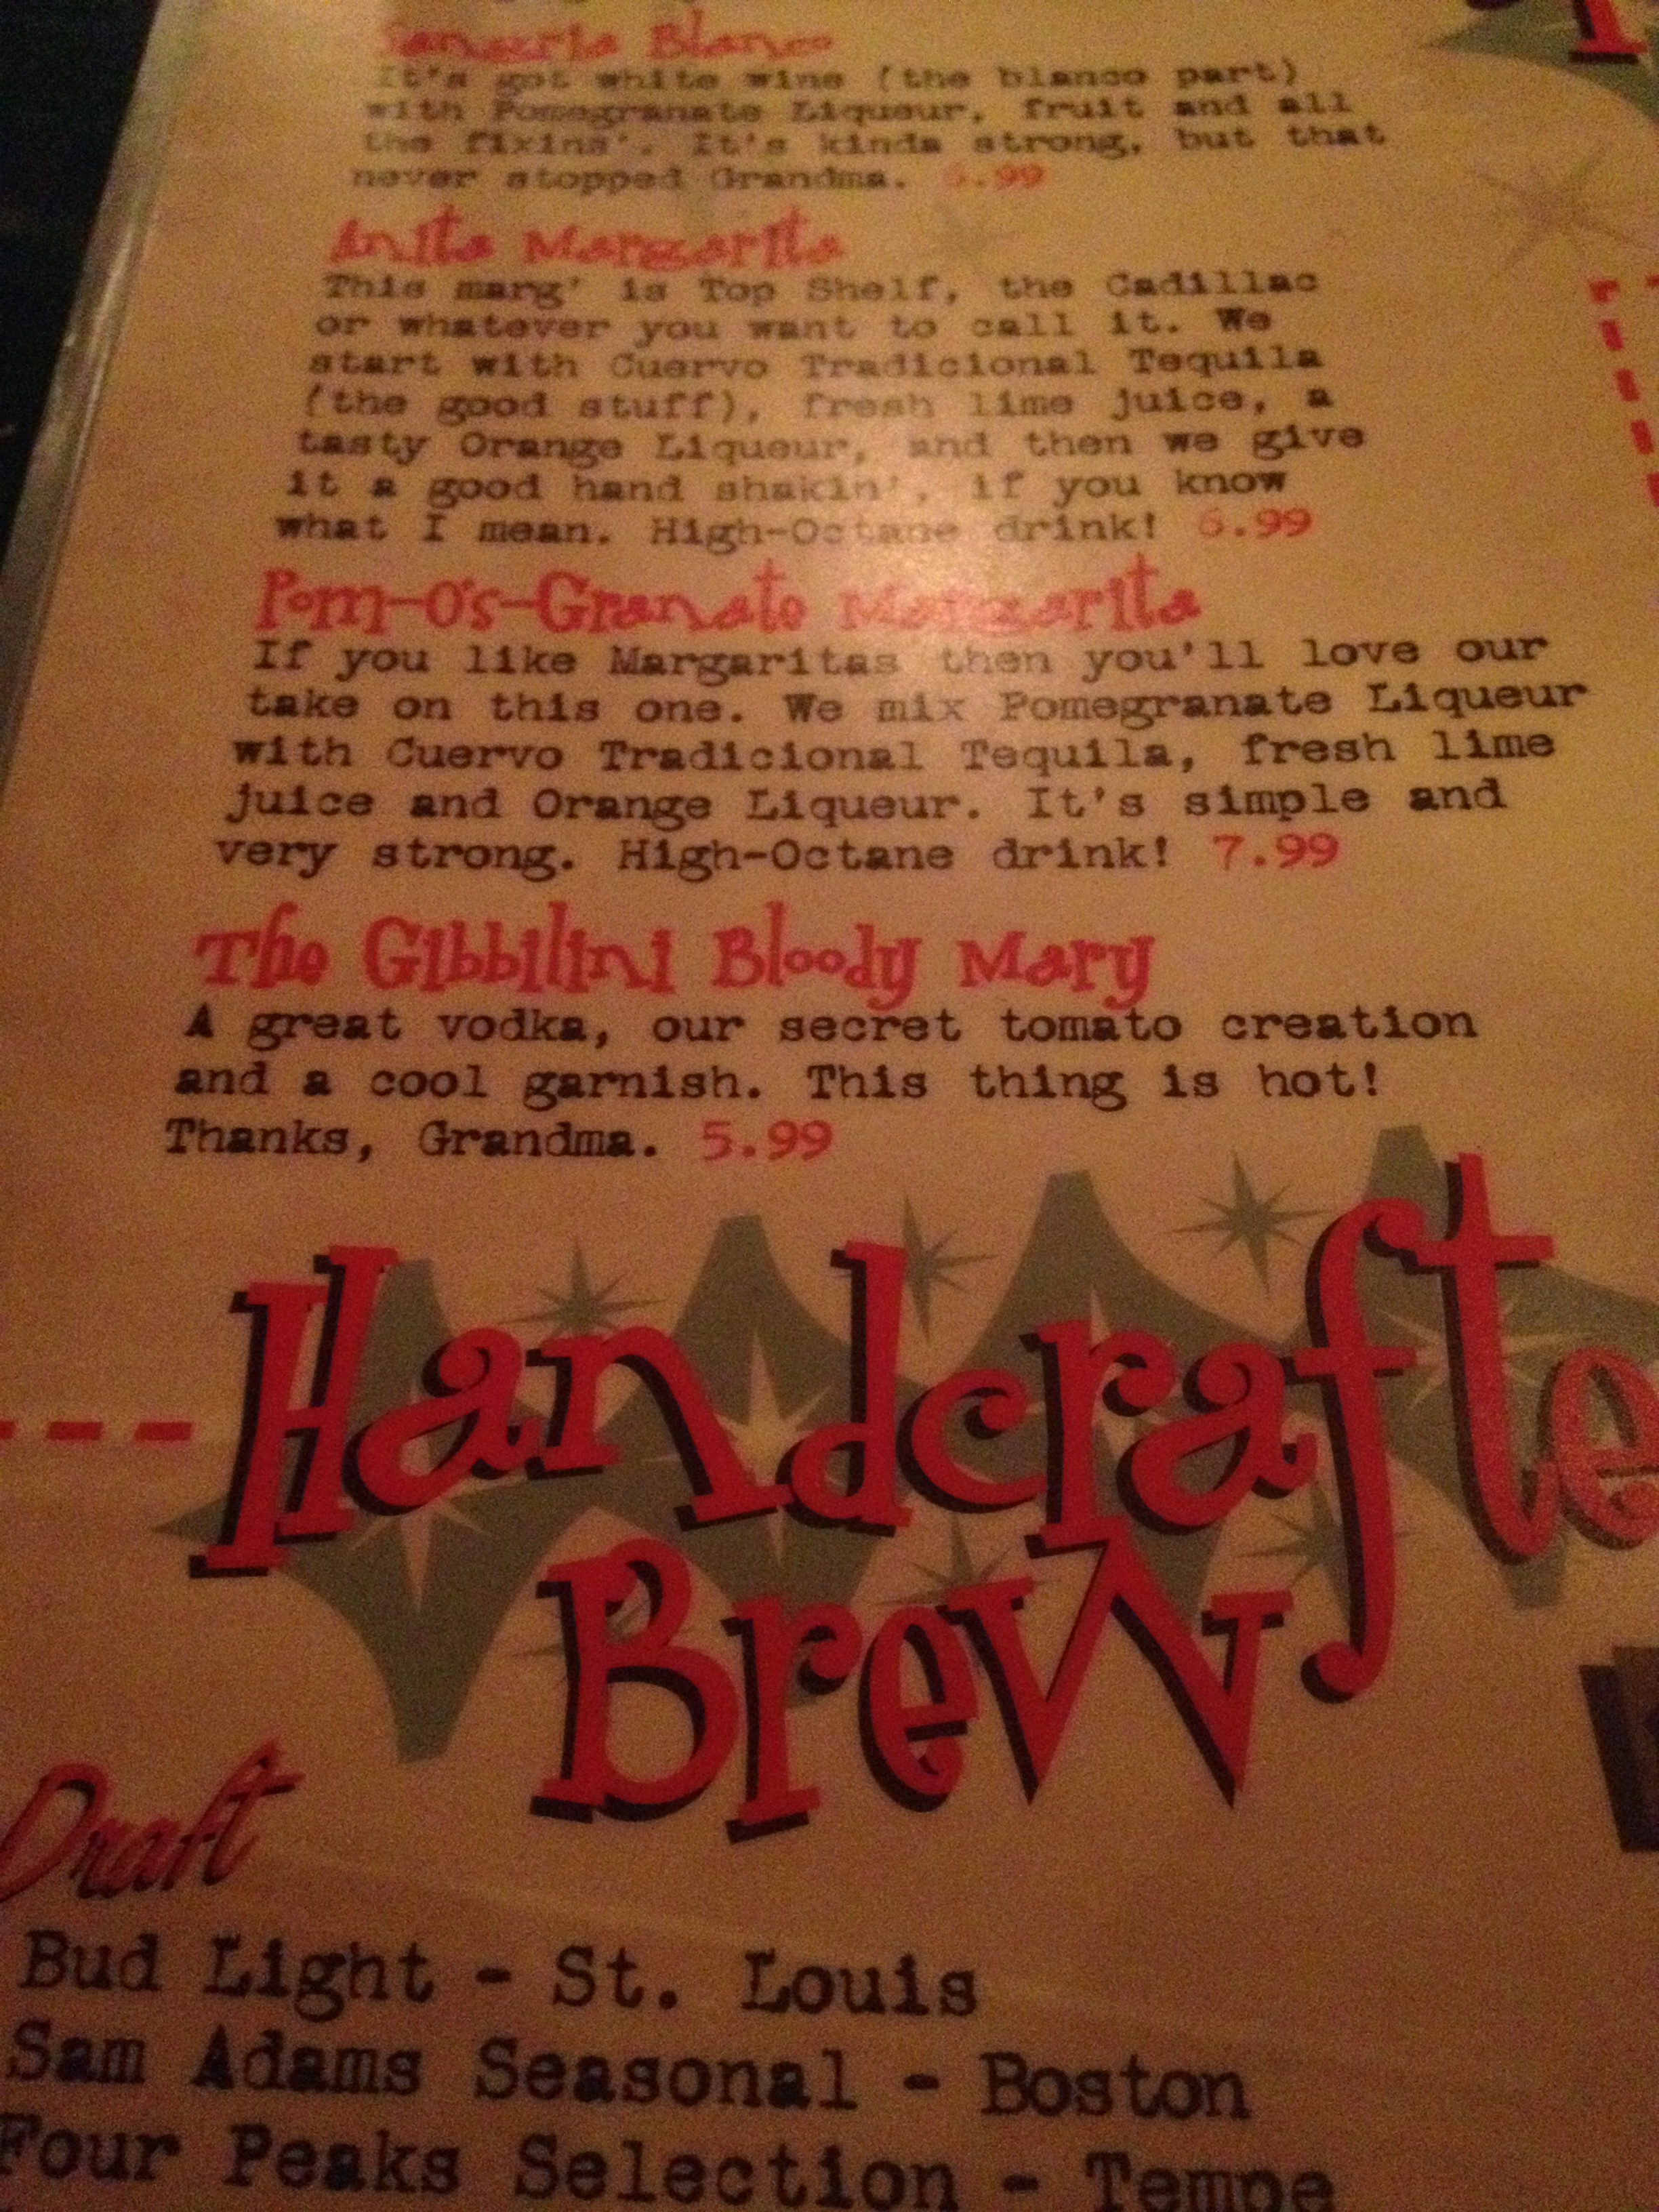 Sangria Blanco
It's got white wine (the blanco part)
with Pomegranate Liqueur, fruit and all
the fixins'. It's kinda strong, but that
never stopped Grandma. 6.99
Anita Margarita
This marg' is Top Shelf, the Cadillac
or whatever you want to call it. We
start with Cuervo Tradicional Tequila
(the good stuff), fresh lime juice, a
tasty Orange Liqueur, and then we give
it a good hand shakin', if you know
what I mean. High-Octane drink! 6.99
Pom-O's-Granate Margarita
If you like Margaritas then you'll love our
take on this one. We mix Pomegranate Liqueur
with Cuervo Tradicional Tequila, fresh lime
juice and Orange Liqueur. It's simple and
very strong. High-Octane drink! 7.99
The Gibbilini Bloody Mary
A great vodka, our secret tomato creation
and a cool garnish. This thing is hot!
Thanks, Grandma. 5.99
Handcrafte
Brew
Draft
Bud Light - St. Louis
Sam Adams Seasonal - Boston
Four Peaks Selection - Tempe